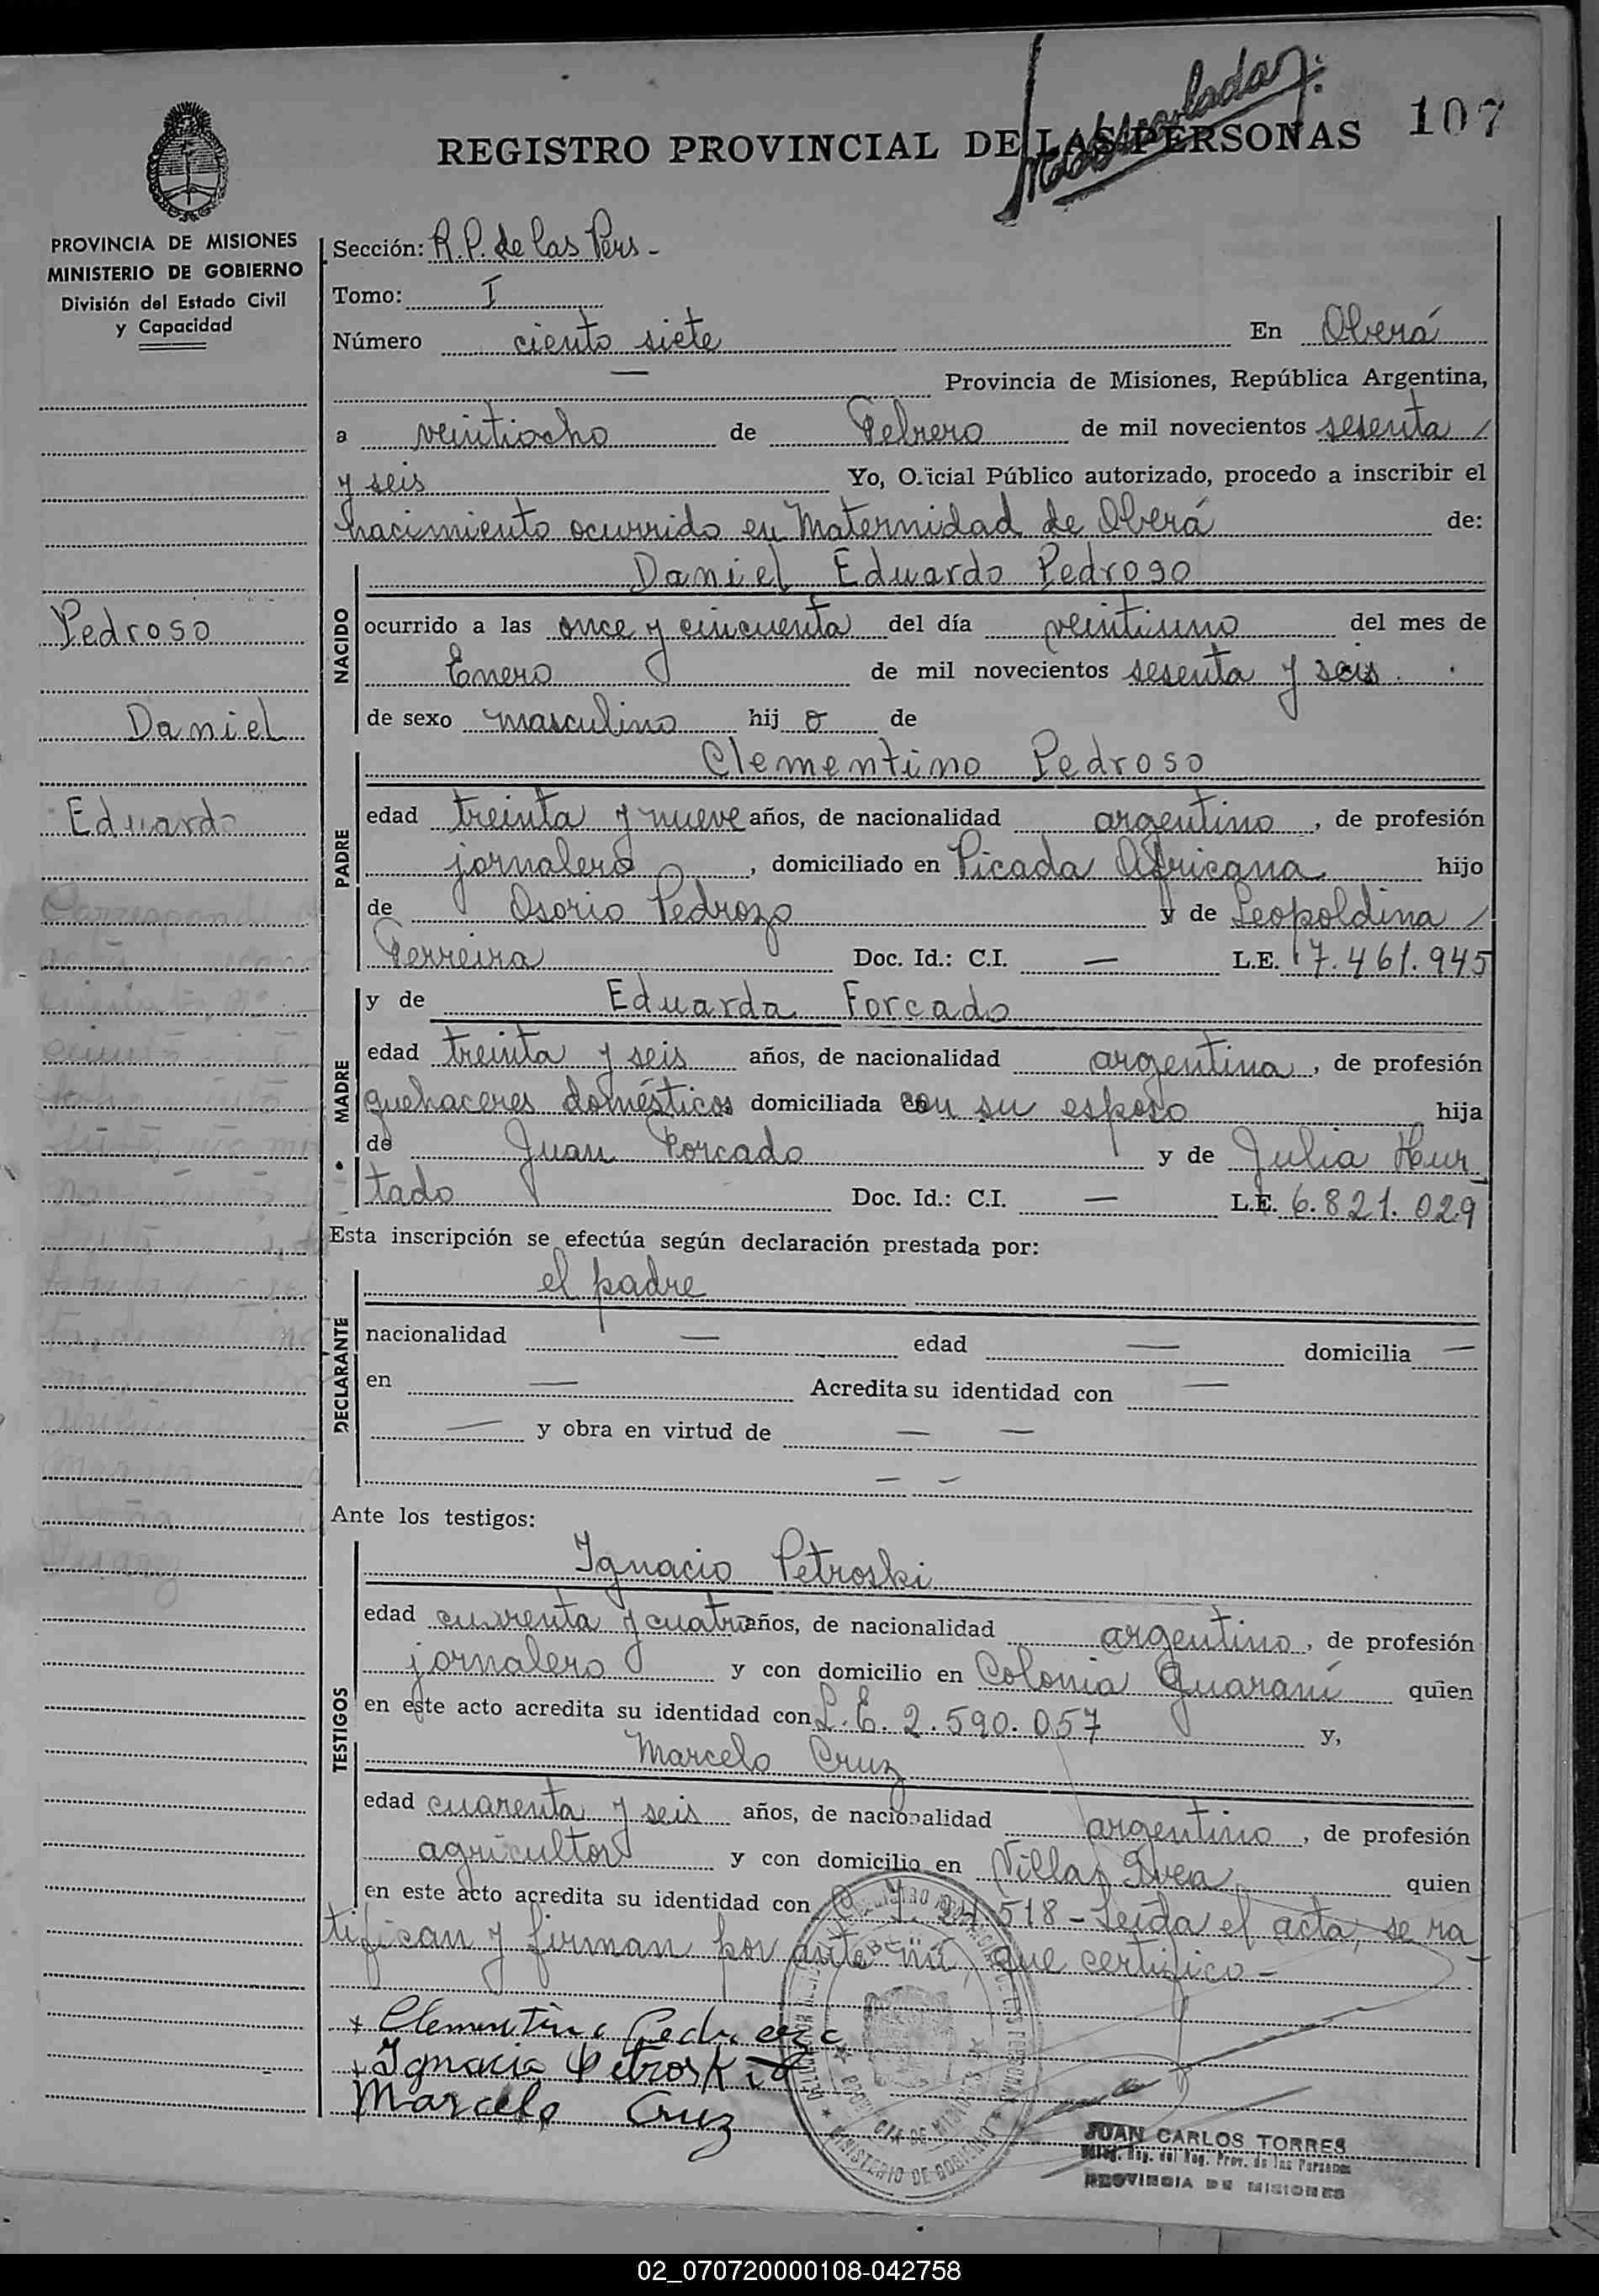 107
REGISTRO PROVINCIAL DE LAS PERSONAS
PROVINCIA DE MISIONES
MINISTERIO DE GOBIERNO
División del Estado Civil
y Capacidad
Pedroso
Daniel
Eduardo
Sección: R.P. de las Pers -
Tomo: I
Número ciento siete En Oberá
— Provincia de Misiones, República Argentina,
a veintiocho de Febrero de mil novecientos sesenta /
y seis Yo, Oficial Público autorizado, procedo a inscribir el
nacimiento ocurrido en Maternidad de Oberá de:
NACIDO
Daniel Eduardo Pedroso
ocurrido a las once y cincuenta del día veintiuno del mes de
Enero de mil novecientos sesenta y seis.
de sexo masculino hij o de
PADRE
Clementino Pedroso
edad treinta y nueve años, de nacionalidad argentino, de profesión
jornalero, domiciliado en Picada Africana hijo
de Osorio Pedrozo y de Leopoldina /
Ferreira Doc. Id.: C.I. — L.E. 7.461.945
MADRE
y de Eduarda Forcado
edad treinta y seis años, de nacionalidad argentina, de profesión
quehaceres domésticos domiciliada con su esposo hija
de Juan Forcado y de Julia Hur
tado Doc. Id.: C.I. — L.E. 6.821.029
Esta inscripción se efectúa según declaración prestada por:
DECLARANTE
el padre
nacionalidad — edad — domicilia —
en — Acredita su identidad con —
— y obra en virtud de — —
— —
Ante los testigos:
TESTIGOS
Ignacio Petroski
edad cuarenta y cuatro años, de nacionalidad argentino, de profesión
jornalero y con domicilio en Colonia Guaraní quien
en este acto acredita su identidad con L.E. 2.590.057 y,
Marcelo Cruz
edad cuarenta y seis años, de nacionalidad argentino, de profesión
agricultor y con domicilio en Villa Svea quien
en este acto acredita su identidad con 24.518 - Leída el acta, se ra
tifican y firman por ante mí, que certifico -
Ignacio Petroski
Marcelo Cruz
MINISTERIO DE GOBIERNO
PROVINCIA DE MISIONES
JUAN CARLOS TORRES
Reg. Prov. de las Personas
PROVINCIA DE MISIONES
02_070720000108-042758